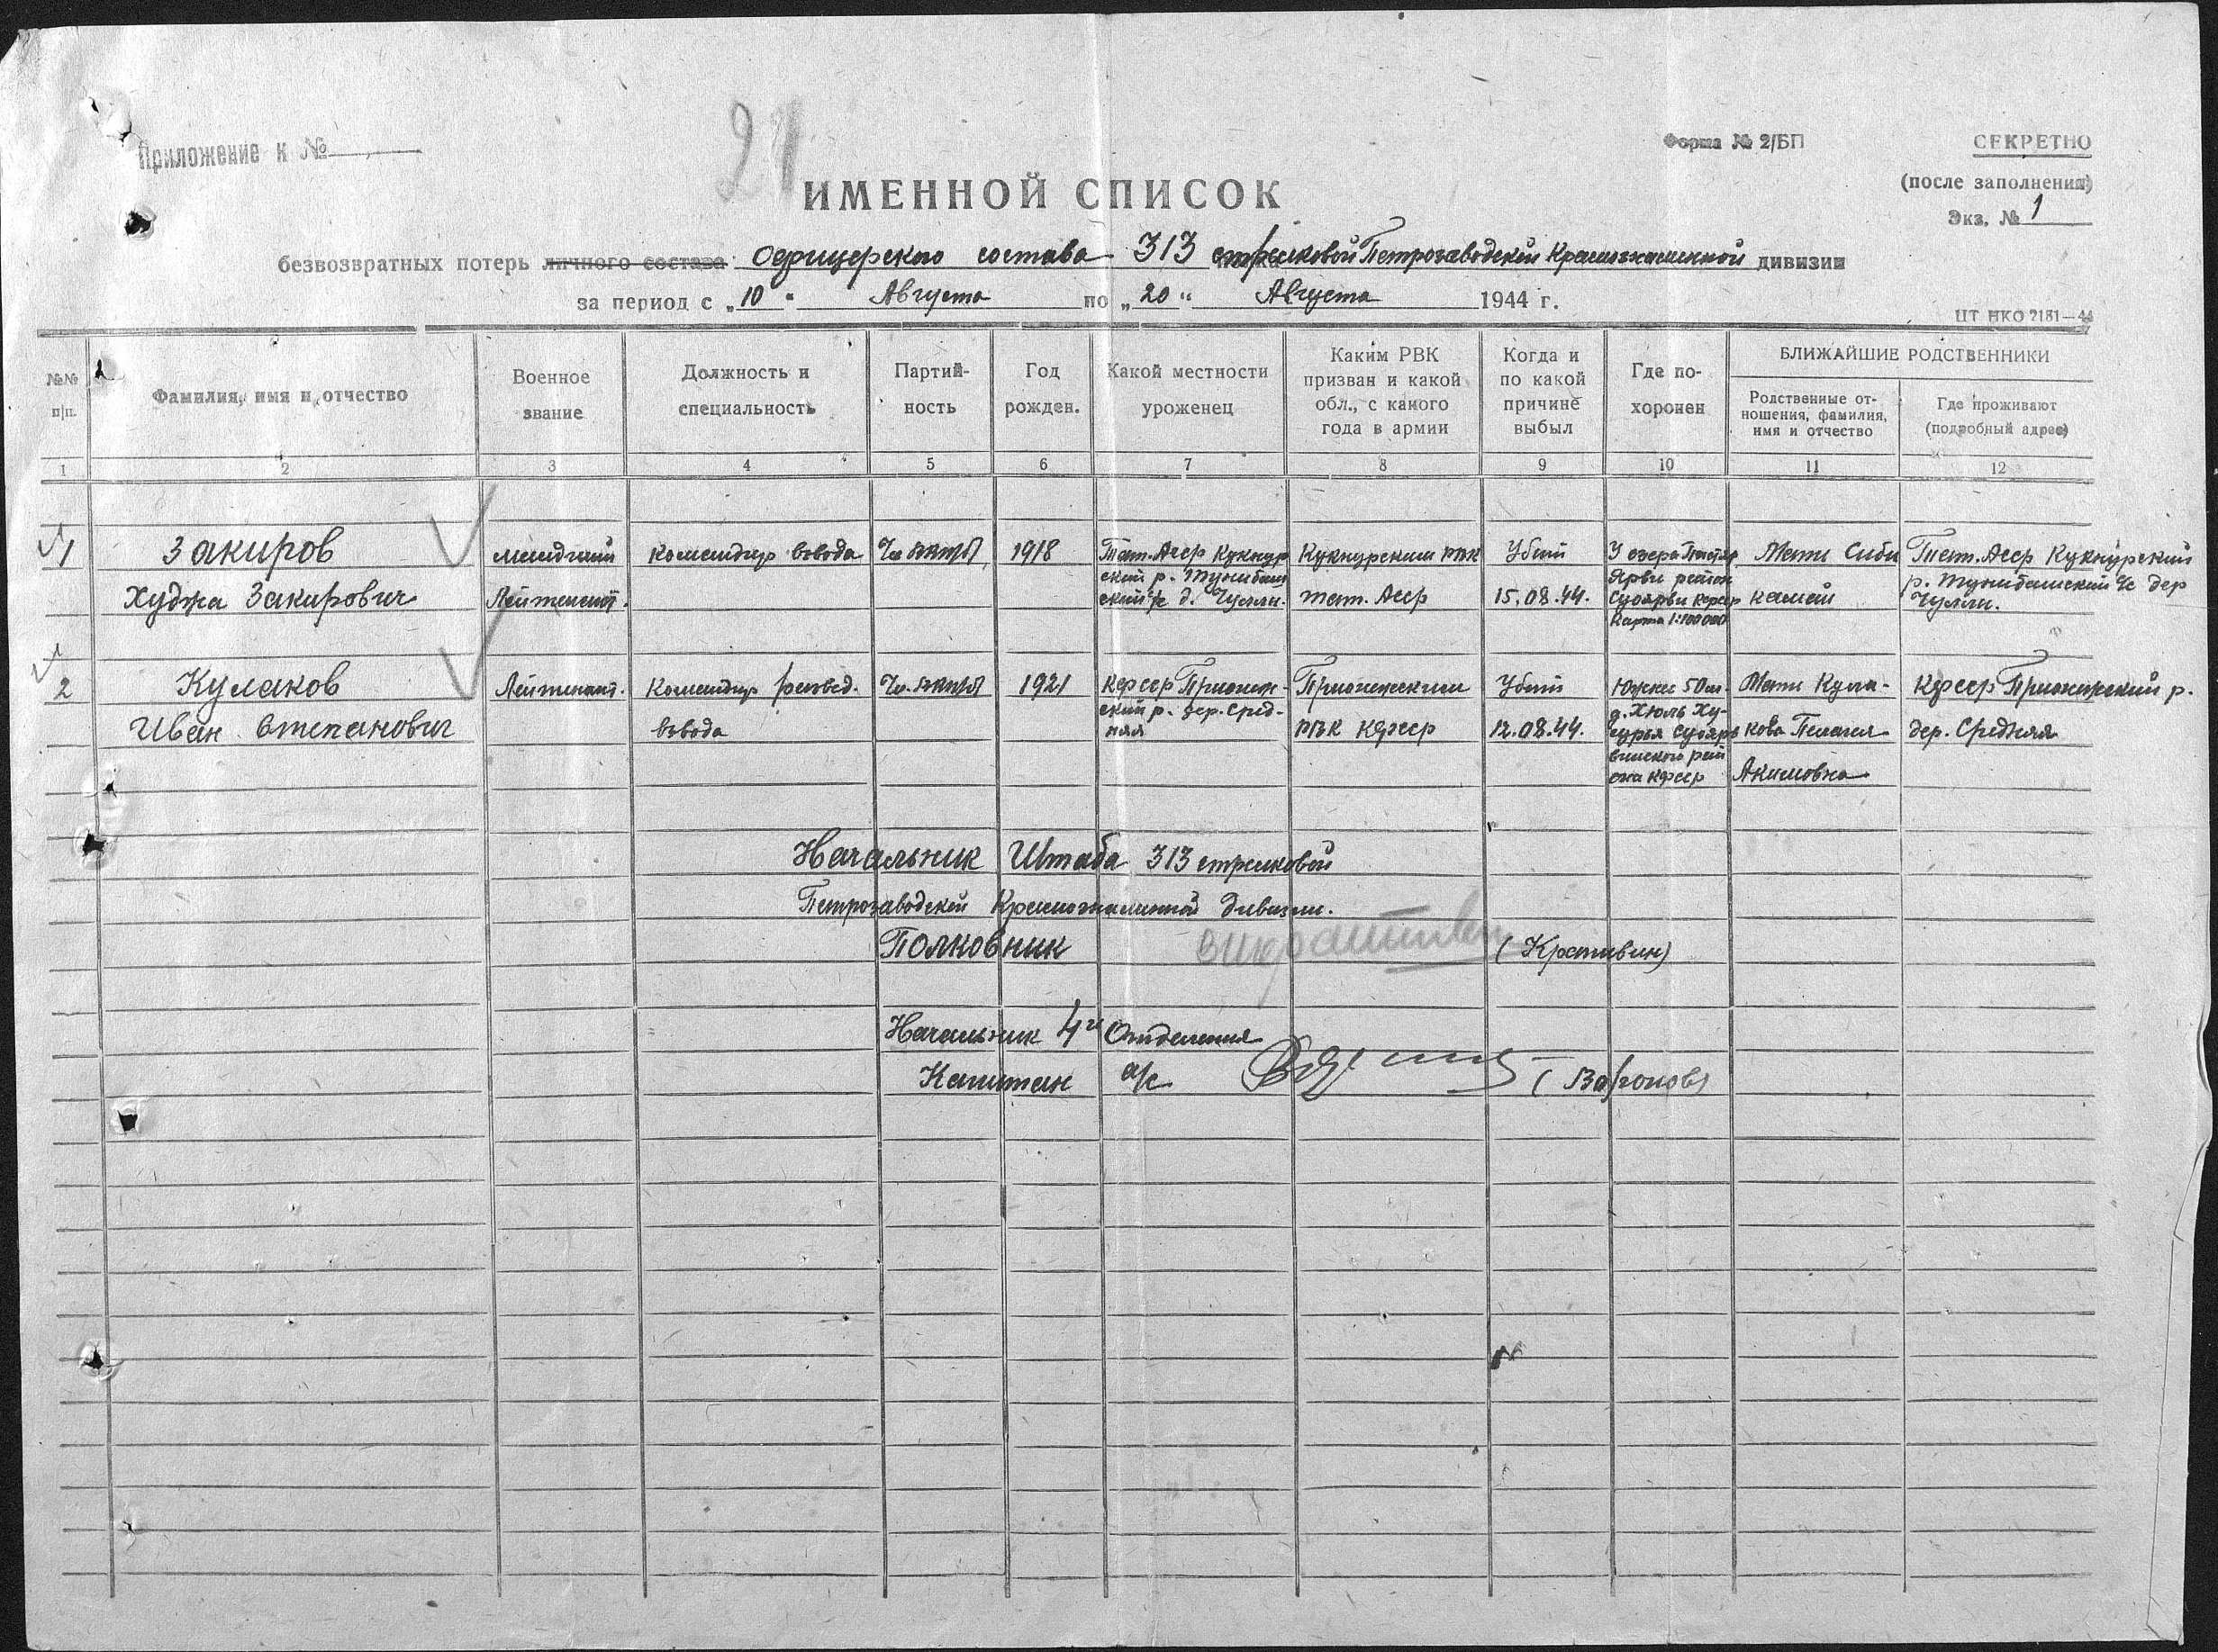 21
Приложение к №
Форма № 2/БП
СЕКРЕТНО
(после заполнения)
Экз. № 1
ИМЕННОЙ СПИСОК
безвозвратных потерь личного состава Офицерского состава 313 стрелковой Петрозаводской Краснознаменной дивизии
за период с „10" Августа по „20" Августа 1944 г.
ЦТ НКО 2181—44
№№ п/п.
Фамилия, имя и отчество
Военное звание
Должность и специальность
Партий-
ность
Год рожден.
Какой местности уроженец
Каким РВК
призван и какой
обл., с какого
года в армии
Когда и
по какой
причине
выбыл
Где по-
хоронен
БЛИЖАЙШИЕ РОДСТВЕННИКИ
Родственные от-
ношения, фамилия,
имя и отчество
Где проживают
(подробный адрес)
1 2 3 4 5 6 7 8 9 10 11 12
1
Закиров
Худжа Закирович
младший
Лейтенант.
Командир взвода
Чл. ВКП(б)
1918
Тат. Асср Кукмур
ский р.
с/с д. Чулпн.
Кукмурским рвк
тат. Асср
Убит
15.08.44.
У озера
Ярви район
Суоярви кфсср
Карта 1:100000
Мать Биби
камал
Тат. Асср Кукмурский
р. с/с дер
Чулпн.
2
Кулаков
Иван Степанович
Лейтенант.
Командир развед.
взвода
Чл. ВКП(б)
1921
Кфсср Прионеж-
ский р. дер. Сред-
няя
Прионежским
РВК Кфсср
Убит
12.08.44.
Южнее 50 м.
д. Хюль Ху-
Суояр
винского рай
она Кфсср
Мать Кула-
кова Пелагея
Акимовна
Кфсср Прионежский р.
дер. Средняя
Начальник Штаба 313 стрелковой
Петрозаводской Краснознаменной дивизии.
Полковник
(Крапивин)
Начальник 4го Отделения
Капитан а/с